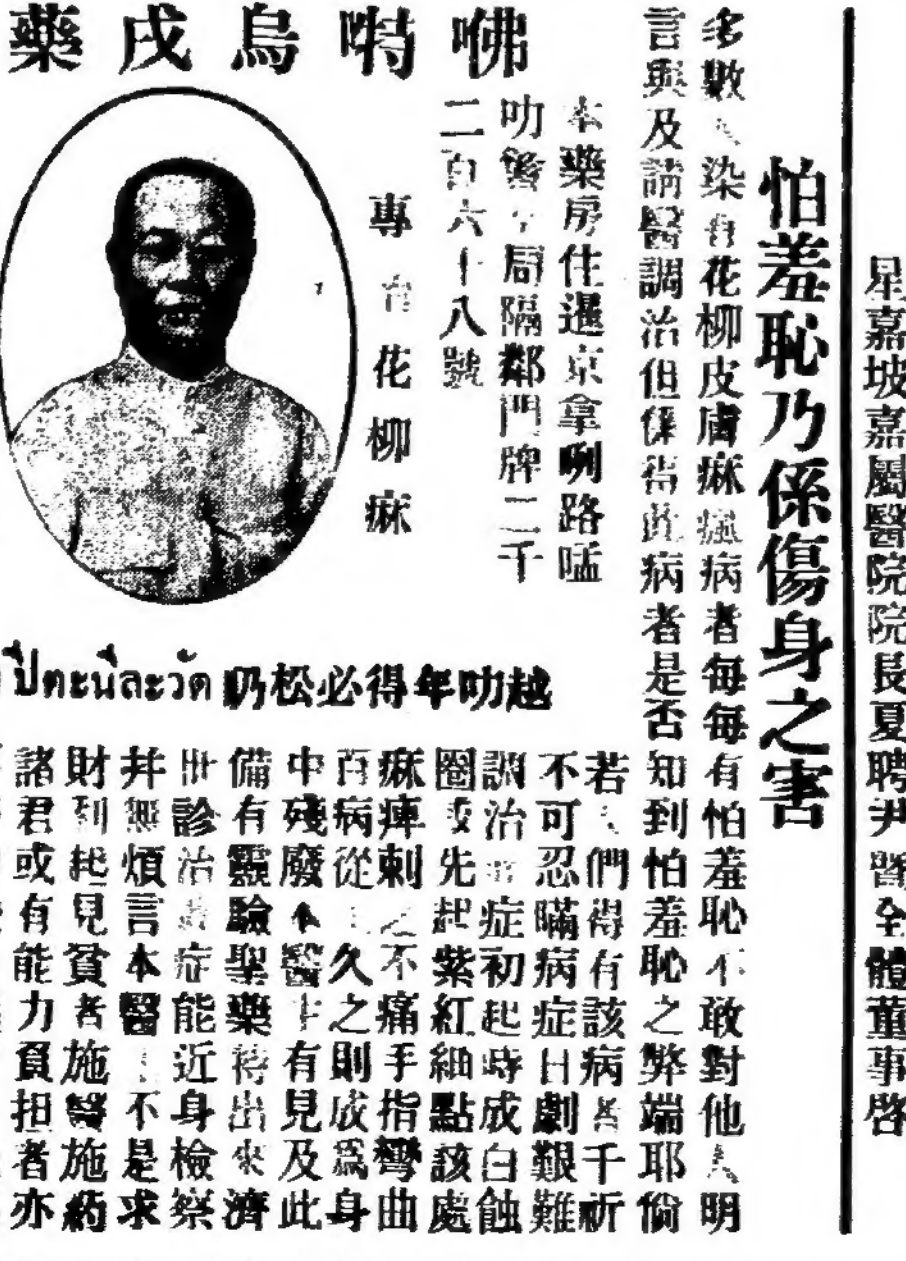 星嘉坡嘉屬醫院院長夏聘尹暨全體董事啓
怕羞恥乃係傷身之害
多數人染有花柳皮膚痳瘋病者每每有怕羞恥不敢對他人明
言與及請醫調治但係有此病者是否知到怕羞恥之弊端耶倘
若人們得有該病者千祈
不可忍瞞病症日劇艱難
調治症初起時成白蝕
圈或先起紫紅細點該處
痳痺刺之不痛手指彎曲
百病從久之則成爲身
中殘廢本醫士有見及此
備有靈驗聖藥特出來濟
世診治該症能近身檢察
并無煩言本醫不是求
財到起見貧者施醫施葯
諸君或有能力負担者亦
咈嘚烏戌藥
本藥房住暹京拿唎路嗑
叻警局隔鄰門牌二千
二百六十八號
專治花柳痳
越叻年得必松叻 วัดละนีตะปี